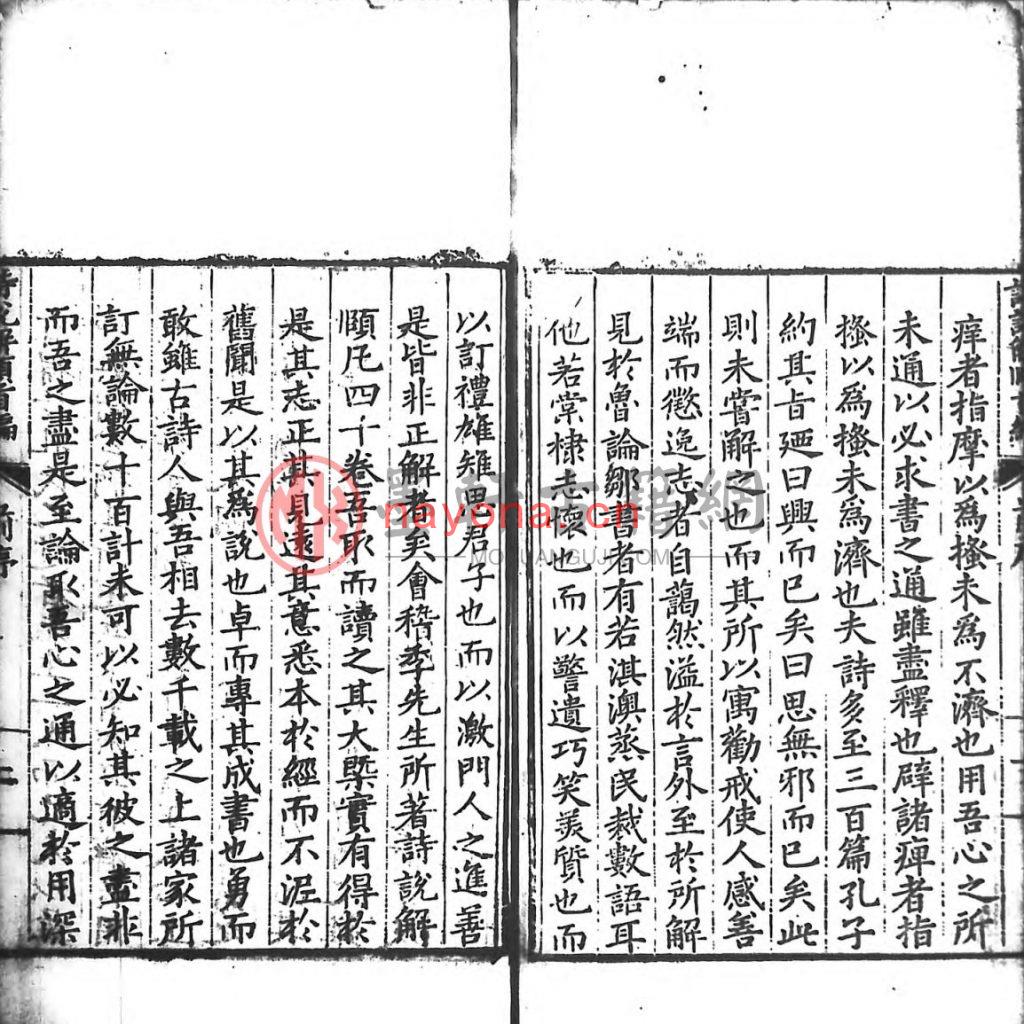 痒者指摩以為搔未為不濟也用吾心之所
未通以必求書之通雖盡釋也辟諸痺者指
搔以為搔未為濟也夫詩多至三百篇孔子
約其旨廼曰興而已矣曰思無邪而已矣此
則未嘗解之也而其所以寓勸戒使人感善
端而懲逸志者自藹然溢於言外至於所解
見於魯論鄒書者有若淇澳蒸民裁數語耳
他若棠棣志懷也而以警遺巧笑美質也而
以訂禮雄雉思君子也而以激門人之進善
是皆非正解者矣會稽季先生所著詩說解
頤凡四十卷吾取而讀之其大槩實有得於
是其志正其見遠其意悉本於經而不泥於
舊聞是以其為說也卓而專其成書也勇而
敢雖古詩人與吾相去數千載之上諸家所
訂無論數十百計未可以必知其彼之盡非
而吾之盡是至論取吾心之通以適於用深
nayona.cn
MOXUANGUJI.COM